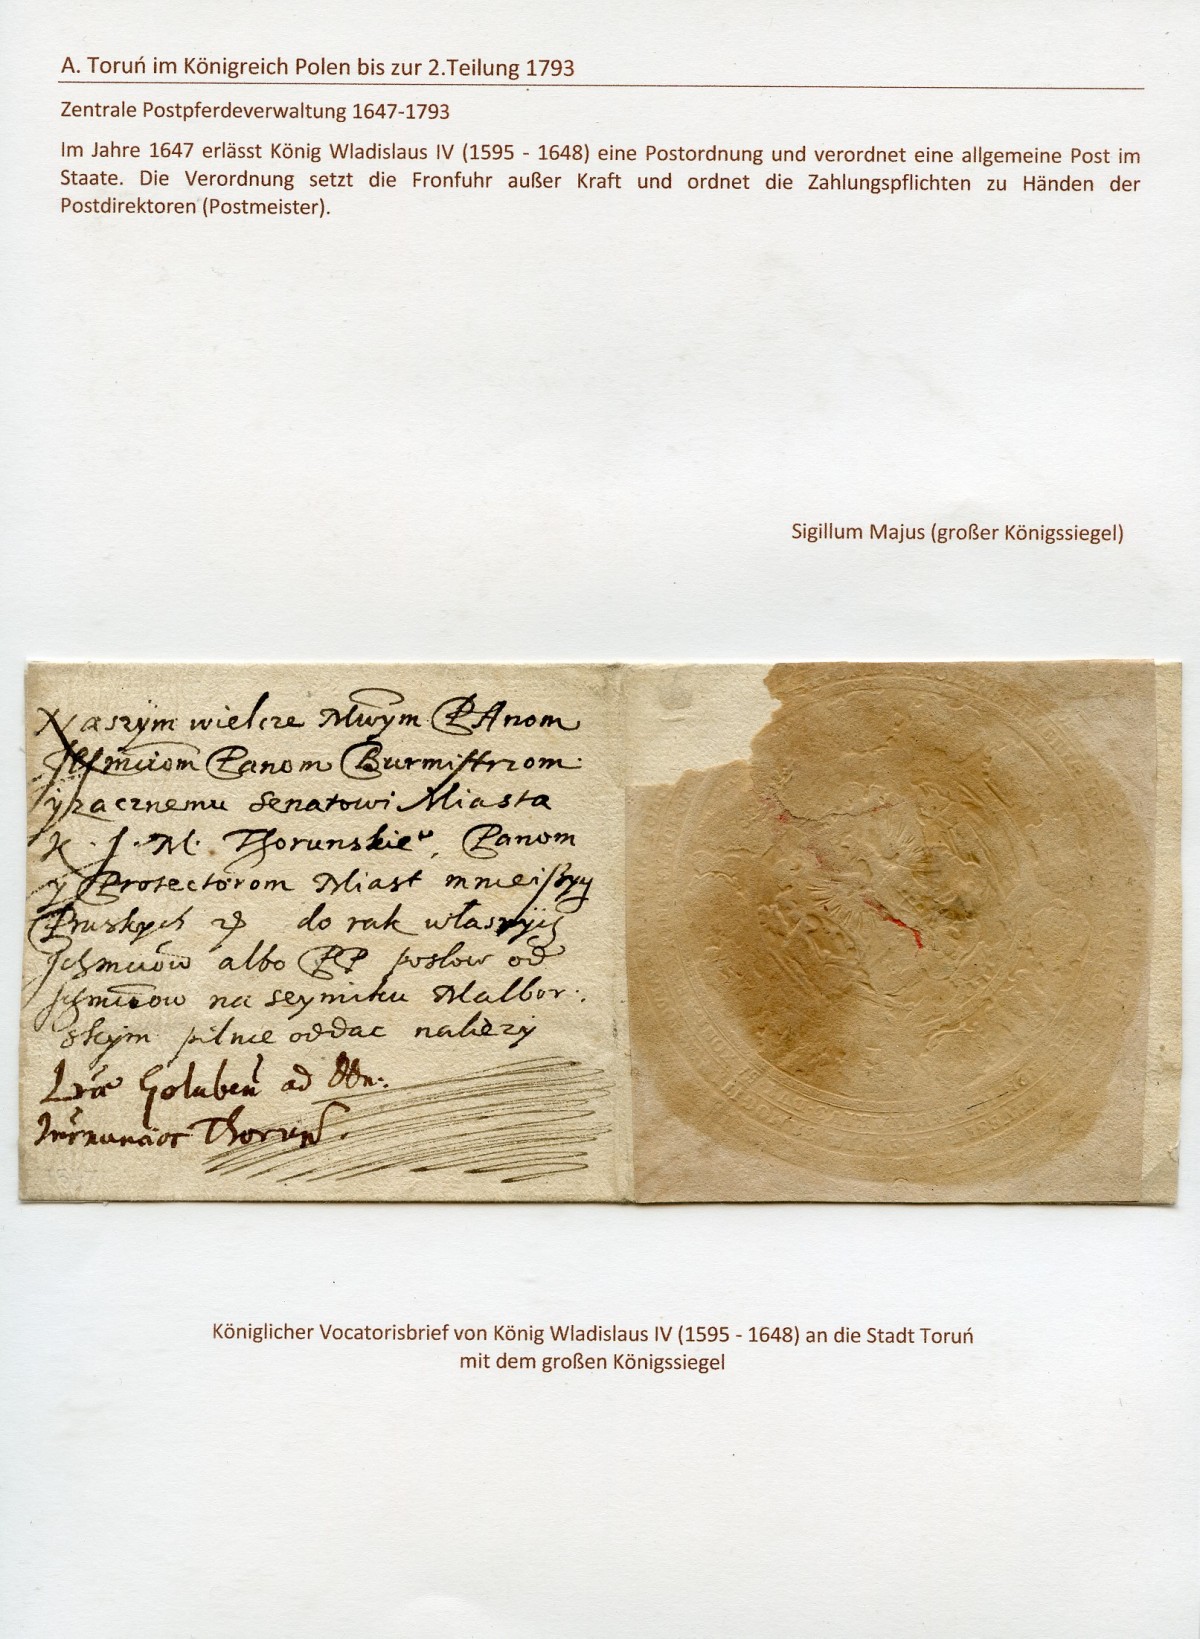 A. Toruń im Königreich Polen bis zur 2.Teilung 1793
Zentrale Postpferdeverwaltung 1647-1793
Im Jahre 1647 erlässt König Wladislaus IV (1595 - 1648) eine Postordnung und verordnet eine allgemeine Post im
Staate. Die Verordnung setzt die Fronfuhr außer Kraft und ordnet die Zahlungspflichten zu Händen der
Postdirektoren (Postmeister).
Sigillum Majus (großer Königssiegel)
Naszÿm wielcze Mwym PAnom
Panom Burmistrzom
ÿ zacznemu Senatowi Miasta
K. J. M. Thorunskie, Panom
y Protectorom Miast mnieißzy
Pruskych do rak własnÿch
albo PP posłow od
na seymiku Malbor.
skym pilnie oddac nalezy
Golubeñ ad
Thoruñ.
Königlicher Vocatorisbrief von König Wladislaus IV (1595 - 1648) an die Stadt Toruń
mit dem großen Königssiegel